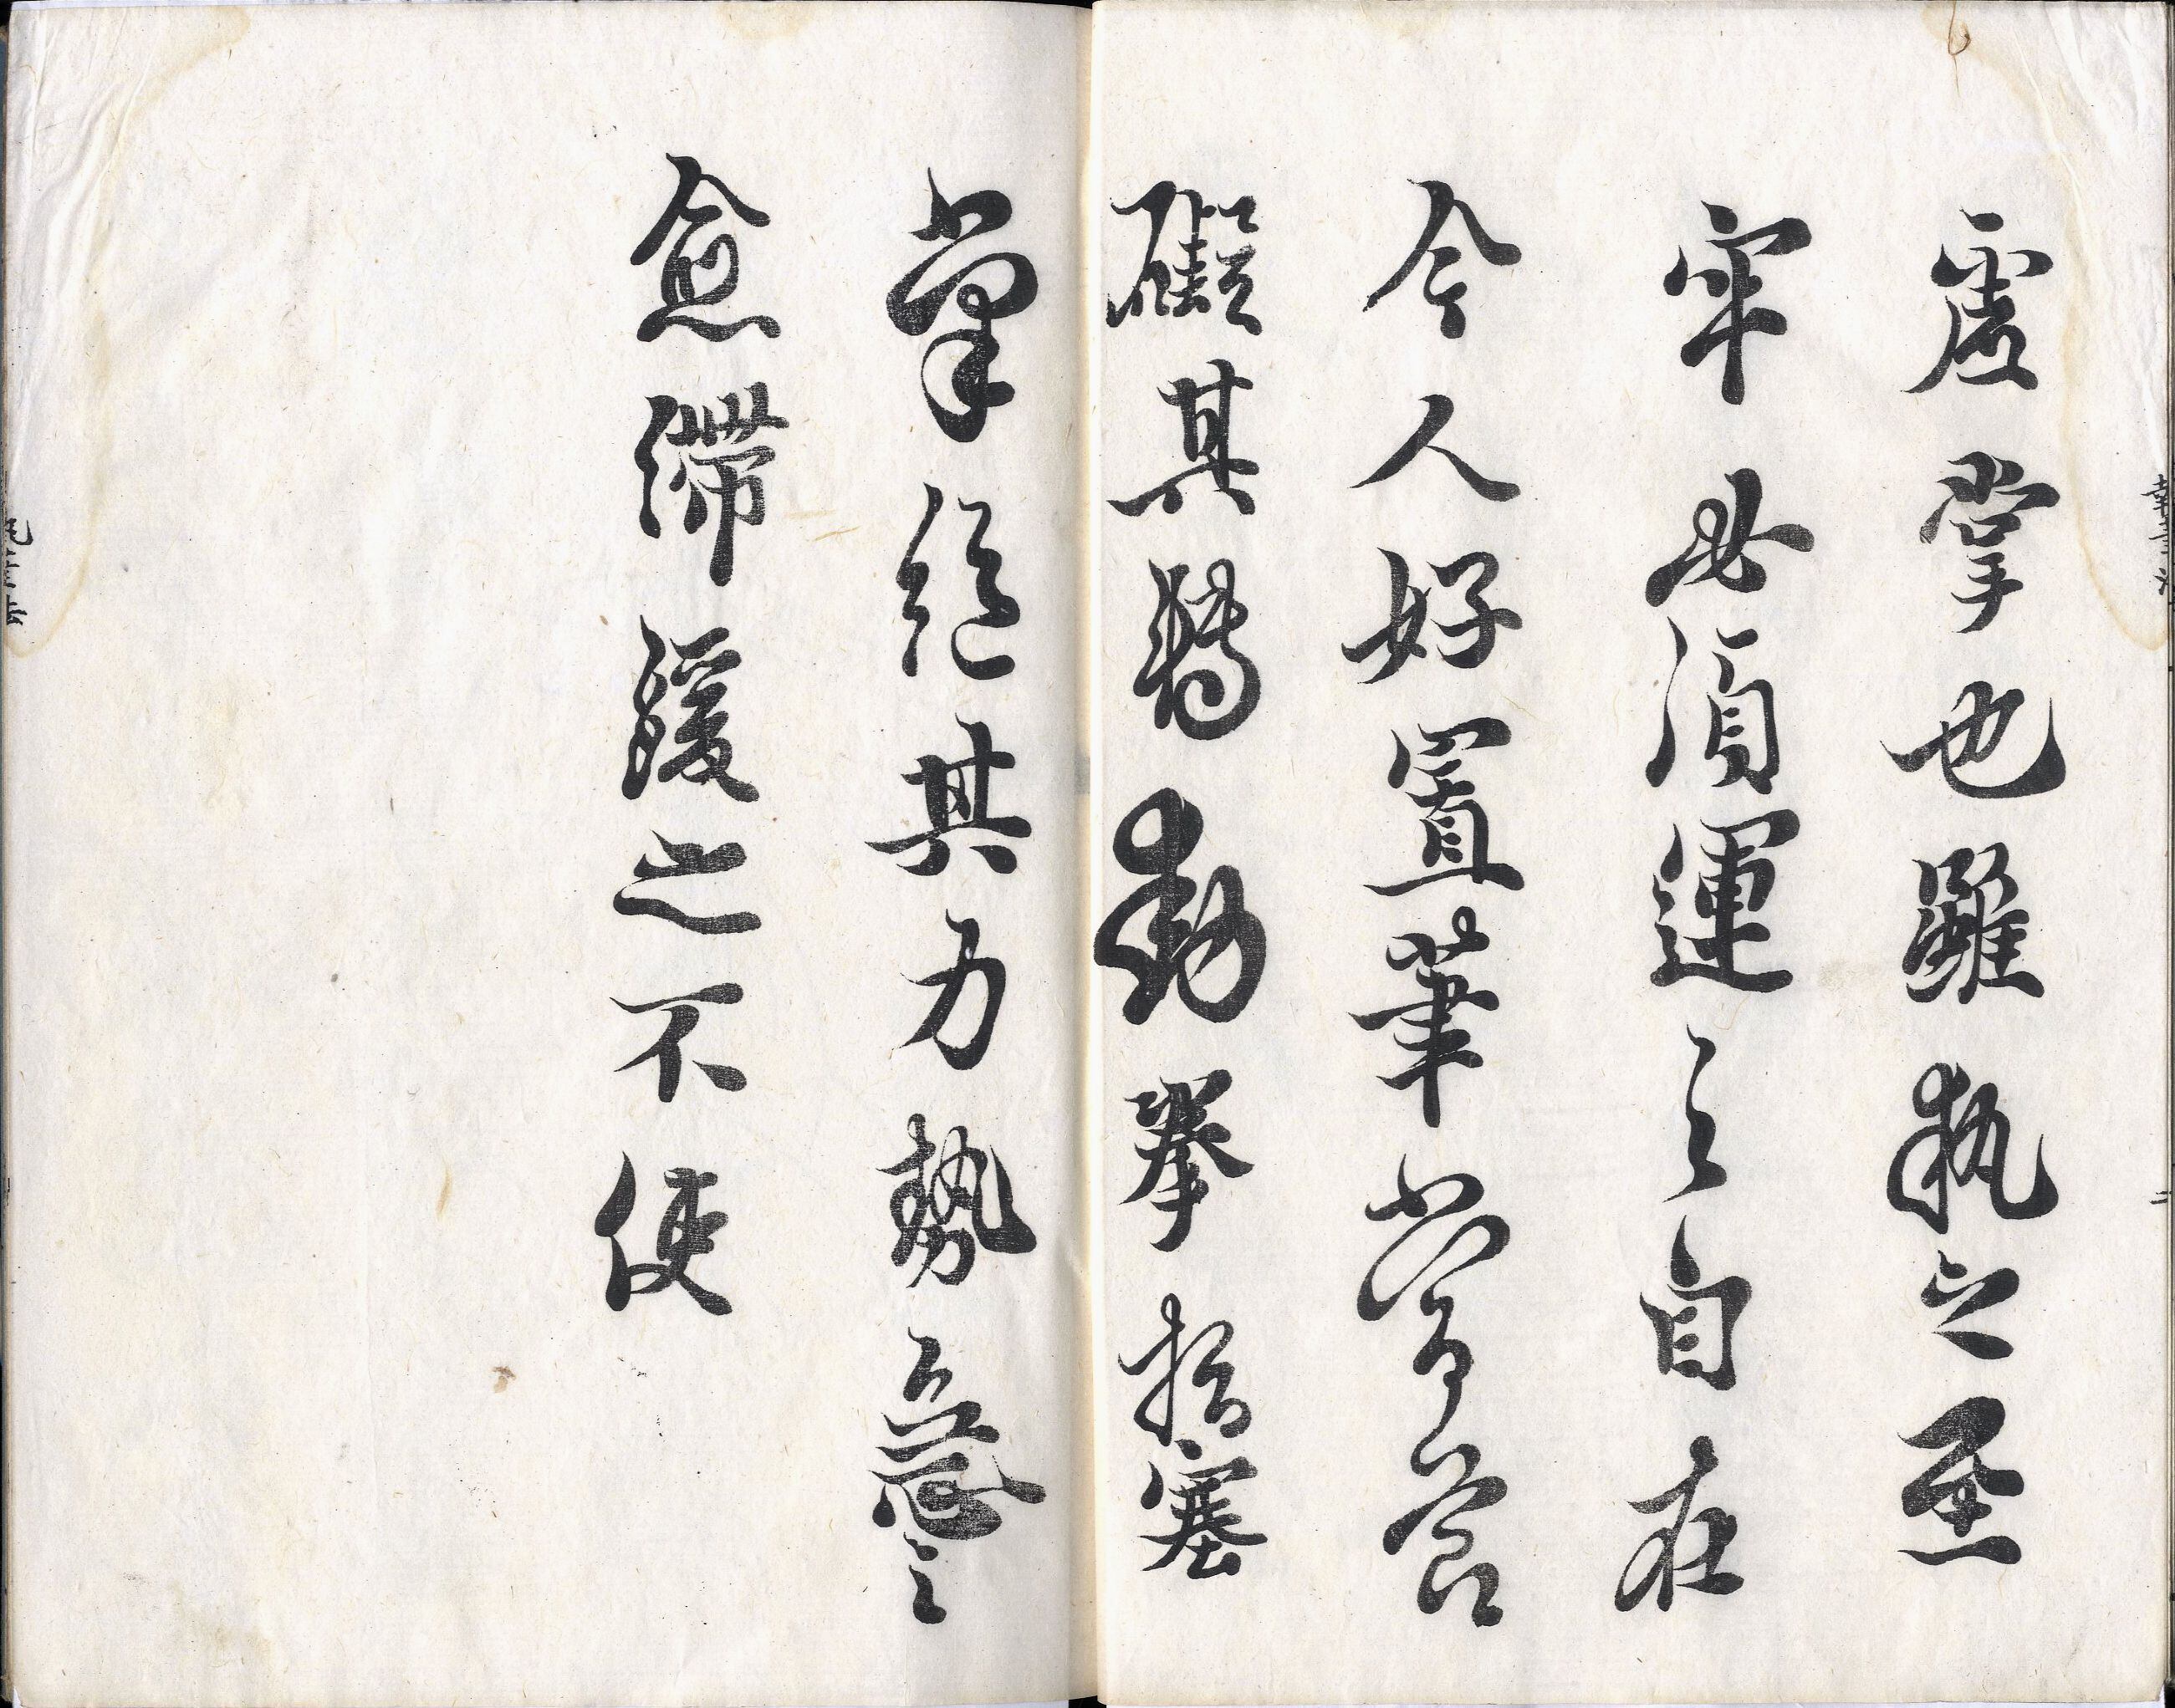 虛掌也雖執之至
牢必須運之自在
今人好置筆當節
礙其轉動拳指塞
掌絕其力勢急之
愈滯緩之不使